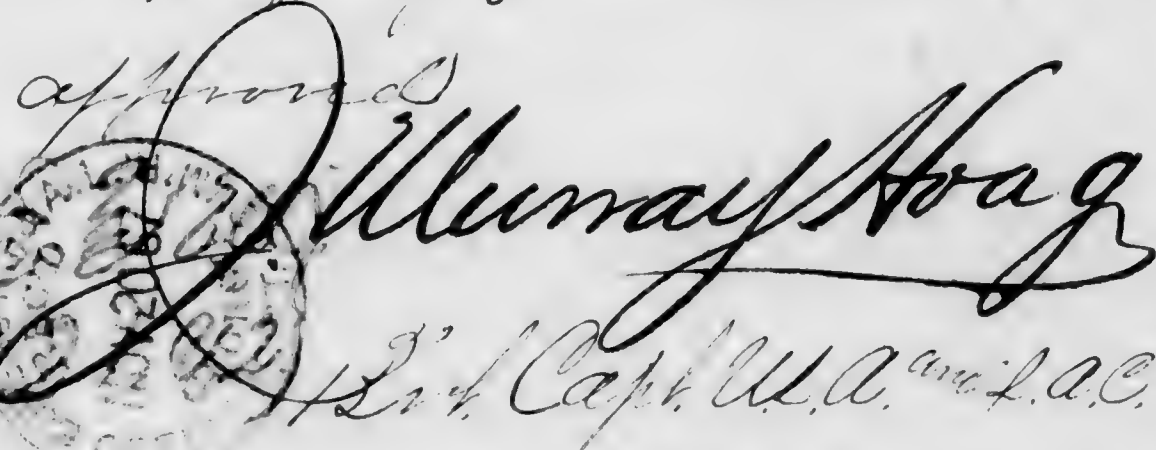 approved
J Murray Hoag
Bvt. Capt. U.S.A. and S.A.C.